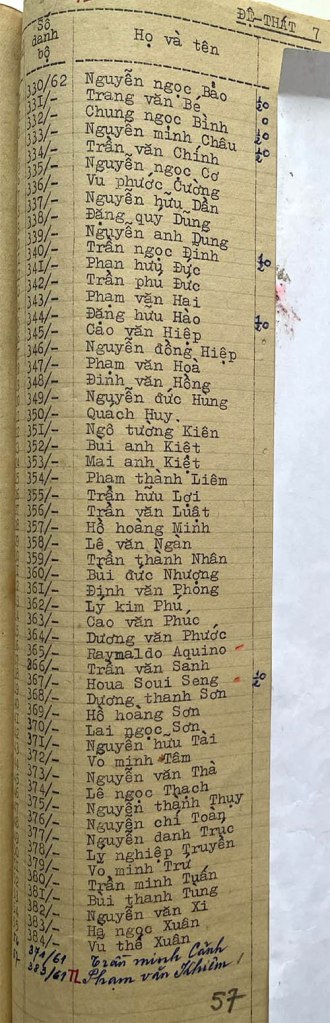 ĐỆ-THẤT 7
Số
danh
bộ
Họ và tên
330/62 Nguyễn ngọc Bảo
331/- Trang văn Be ½
332/- Chung ngọc Bình 0
333/- Nguyễn minh Châu ½
334/- Trần văn Chính ½
335/- Nguyễn ngọc Cơ
336/- Vu phước Cường
337/- Nguyễn hữu Dần
338/- Đặng quý Dũng
339/- Nguyễn anh Dung
340/- Trần ngọc Đinh
341/- Phan hữu Đực ½
342/- Trần phú Đức
343/- Phạm văn Hai
344/- Đăng hữu Hào ½
345/- Cao văn Hiệp
346/- Nguyễn đồng Hiệp
347/- Phạm văn Hoa
348/- Đinh văn Hồng
349/- Nguyễn đức Hùng
350/- Quach Huy
351/- Ngô tường Kiên
352/- Bùi anh Kiệt
353/- Mai anh Kiệt
354/- Phạm thành Liêm
355/- Trần hữu Lợi
356/- Trần văn Luật
357/- Hồ hoàng Minh
358/- Lê văn Ngàn
359/- Trần thành Nhân
360/- Bùi đức Nhượng
361/- Đinh văn Phòng
362/- Lý kim Phú
363/- Cao văn Phúc
364/- Dương văn Phước
365/- Raymaldo Aquino -
366/- Trần văn Sanh
367/- Houa Soui Seng - ½
368/- Dương thanh Sơn
369/- Hồ hoàng Sơn
370/- Lai ngọc Sơn
371/- Nguyễn hữu Tài
372/- Vo minh Tâm
373/- Nguyễn văn Thà
374/- Lê ngọc Thạch
375/- Nguyễn thành Thụy
376/- Nguyễn chí Toan
377/- Nguyễn danh Trực
378/- Ly nghiệp Truyền
379/- Vo minh Trứ
380/- Trần minh Tuấn
381/- Bùi thanh Tùng
382/- Nguyễn văn Xi
383/- Hà ngọc Xuân
384/- Vu thế Xuân
374/61 Trần minh Cảnh
385/61 TL Phạm văn Khiêm
57